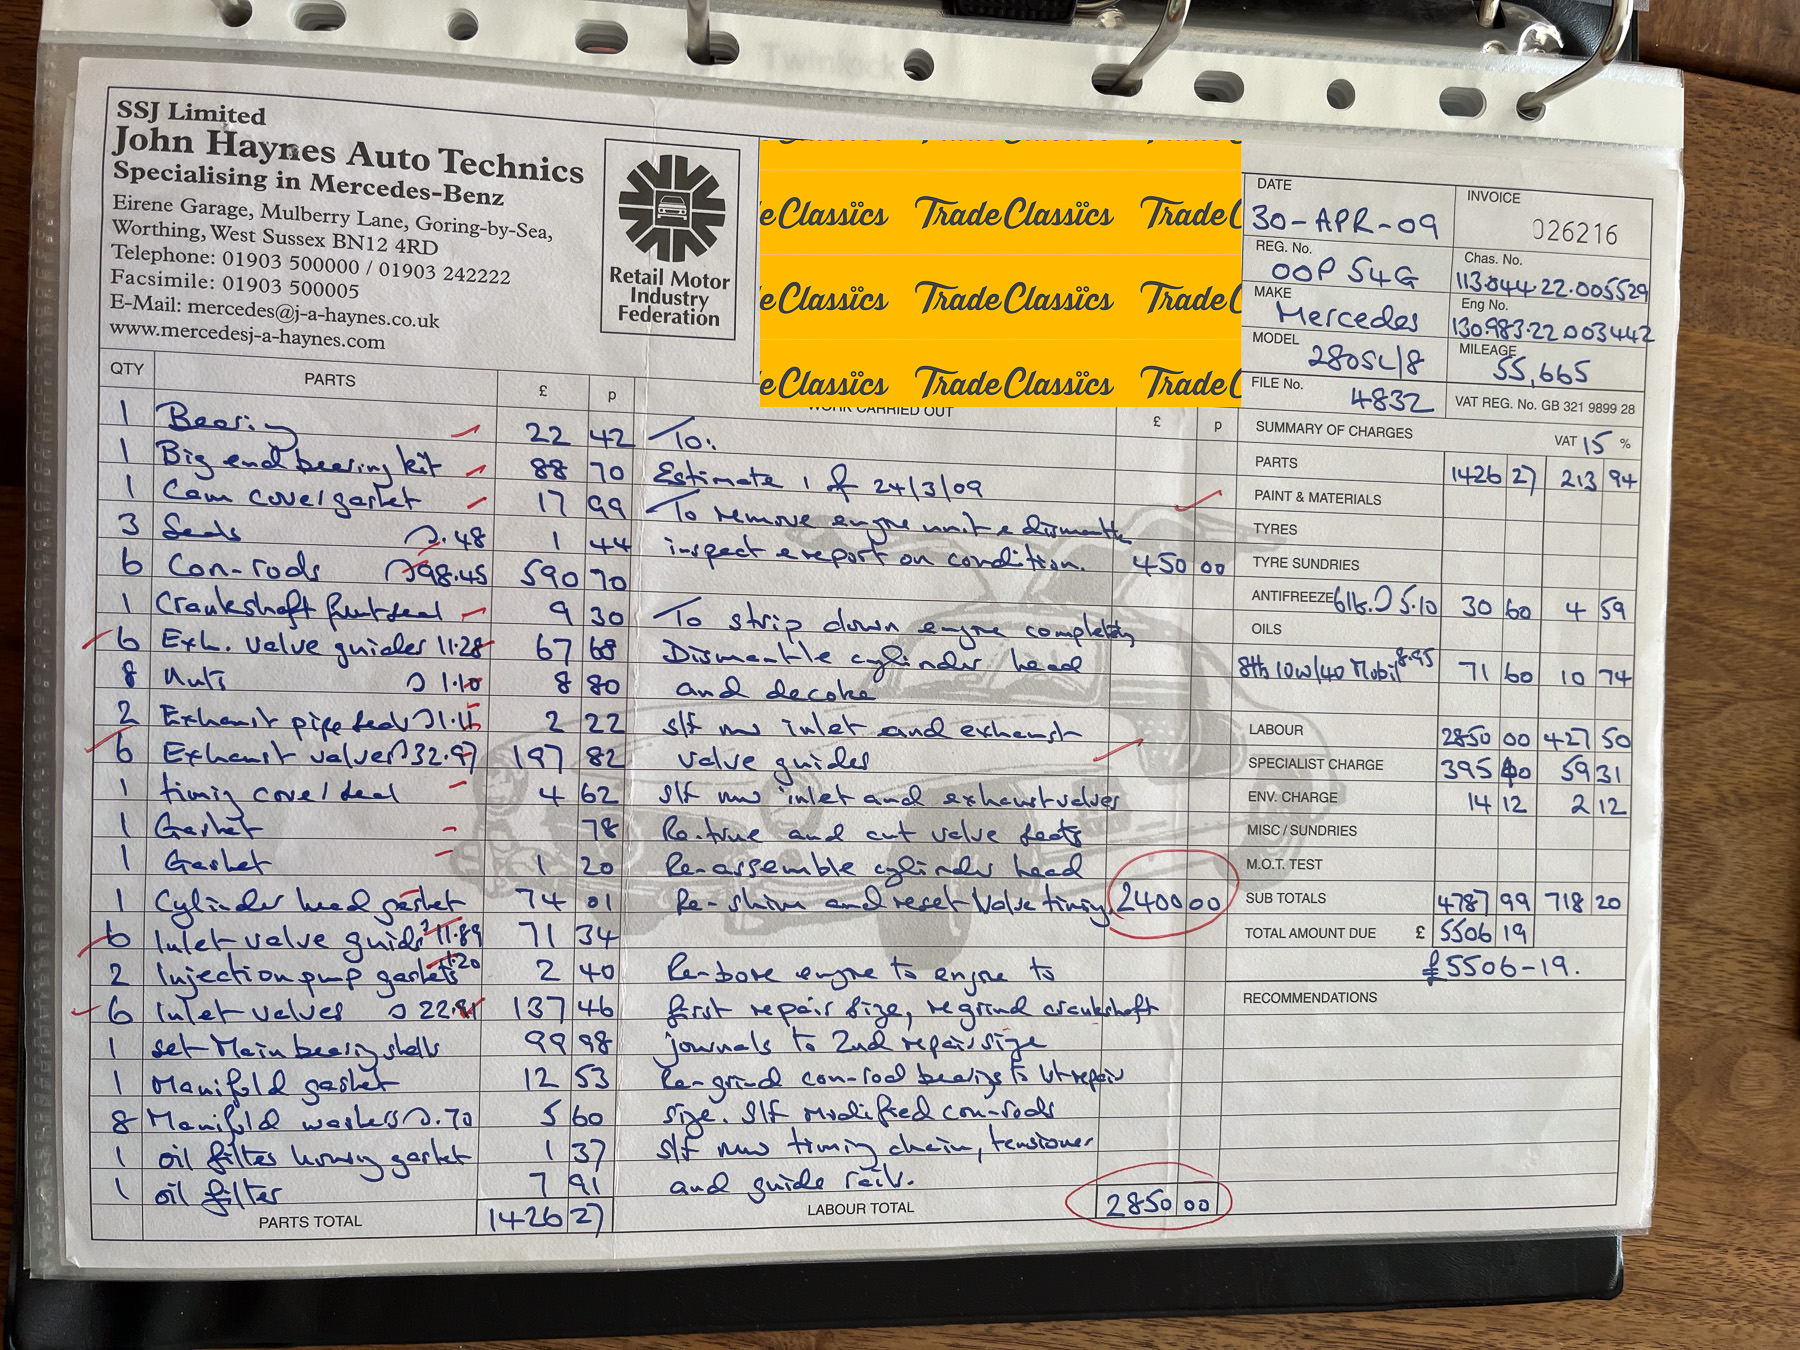 Twinlock
SSJ Limited
John Haynes Auto Technics
Specialising in Mercedes-Benz
Eirene Garage, Mulberry Lane, Goring-by-Sea,
Worthing, West Sussex BN12 4RD
Telephone: 01903 500000 / 01903 242222
Facsimile: 01903 500005
E-Mail: mercedes@j-a-haynes.co.uk
www.mercedesj-a-haynes.com
Retail Motor
Industry
Federation
e Classics Trade Classics Trade C
e Classics Trade Classics Trade C
e Classics Trade Classics Trade C
DATE
30-APR-09
INVOICE
026216
REG. No.
OOP 54G
Chas. No.
113.044.22.005529
MAKE
Mercedes
Eng No.
130.983.22 003442
MODEL
280SL/8
MILEAGE
55,665
FILE No.
4832
VAT REG. No. GB 321 9899 28
QTY PARTS £ p
1 Bearing 22 42
1 Big end bearing kit 88 70
1 Cam cover gasket 17 99
3 Seals .48 1 44
6 Con-rods 98.45 590 70
1 Crankshaft front seal 9 30
6 Exh. valve guides 11.28 67 68
8 Nuts 1.10 8 80
2 Exhaust pipe seals 1.11 2 22
6 Exhaust valves 32.97 197 82
1 timing cover seal 4 62
1 Gasket 78
1 Gasket 1 20
1 Cylinder head gasket 74 01
6 Inlet valve guides 11.89 71 34
2 Injection pump gaskets 1.20 2 40
6 Inlet valves 22.91 137 46
1 set Main bearing shells 99 98
1 Manifold gasket 12 53
8 Manifold washers .70 5 60
1 oil filter housing gasket 1 37
1 oil filter 7 91
PARTS TOTAL 1426 27
WORK CARRIED OUT £ p
To:
Estimate 1 of 24/3/09
To remove engine unit & dismantle
inspect & report on condition. 450 00
To strip down engine completely
Dismantle cylinder head
and decoke
s/f new inlet and exhaust
valve guides
s/f new inlet and exhaust valves
Re-true and cut valve seats
Re-assemble cylinder head
Re-shim and reset Valve timing 2400 00
Re-bore engine to engine to
first repair size, regrind crankshaft
journals to 2nd repair size
Re-grind con-rod bearings to 1st repair
size. S/f modified con-rods
s/f new timing chain, tensioner
and guide rails.
LABOUR TOTAL 2850 00
SUMMARY OF CHARGES VAT 15 %
PARTS 1426 27 213 94
PAINT & MATERIALS
TYRES
TYRE SUNDRIES
ANTIFREEZE 6lts. 5.10 30 60 4 59
OILS
8lts 10w/40 Mobil 8.95 71 60 10 74
LABOUR 2850 00 427 50
SPECIALIST CHARGE 395 40 59 31
ENV. CHARGE 14 12 2 12
MISC / SUNDRIES
M.O.T. TEST
SUB TOTALS 4787 99 718 20
TOTAL AMOUNT DUE £ 5506 19
£5506-19.
RECOMMENDATIONS